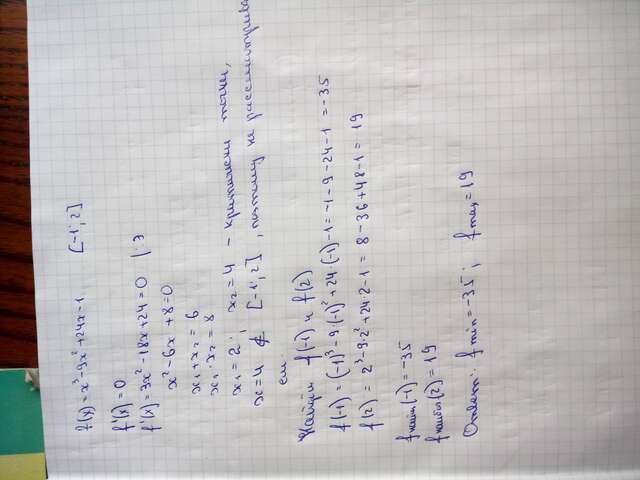 f(x) = x³-9x²+24x-1 [-1; 2]
f'(x)=0
f'(x)=3x²-18x+24=0 |:3
x²-6x+8=0
x₁+x₂=6
x₁·x₂=8
x₁=2; x₂=4 - критические точки,
x=4 ∉ [-1; 2], поэтому не рассматрива
ем
Найдём f(-1) и f(2)
f(-1)=(-1)³-9·(-1)²+24·(-1)-1=-1-9-24-1=-35
f(2)=2³-9·2²+24·2-1=8-36+48-1=19
fнаим(-1)=-35
fнаиб(2)=19
Ответ: fmin=-35; fmax=19